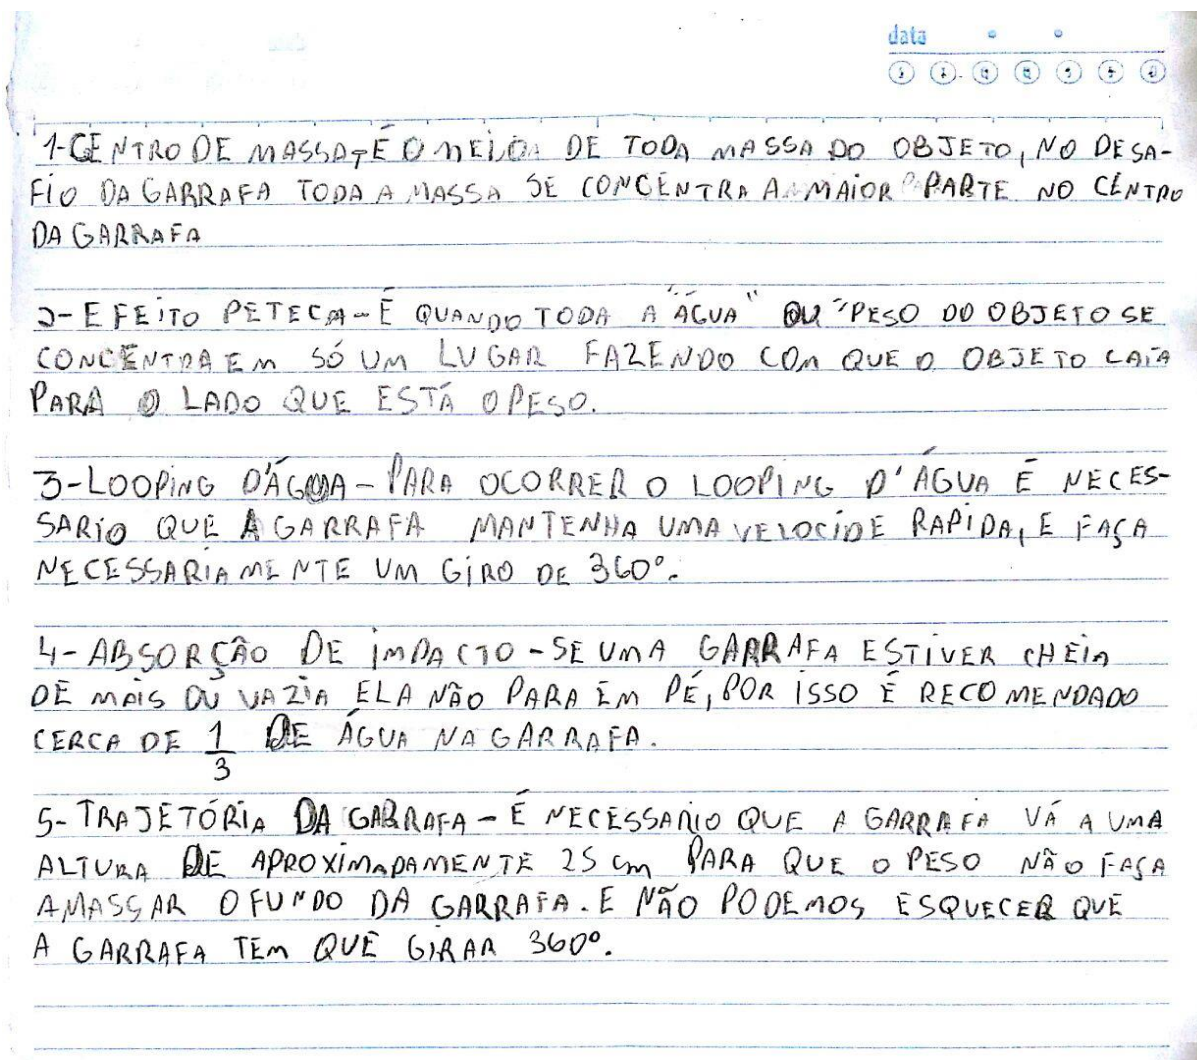 data
1-CENTRO DE MASSA-É O MEIO DE TODA MASSA DO OBJETO, NO DESA-
FIO DA GARRAFA TODA A MASSA SE CONCENTRA A MAIOR PARTE NO CENTRO
DA GARRAFA
2-EFEITO PETECA-É QUANDO TODA A "ÁGUA" OU "PESO DO OBJETO SE
CONCENTRA EM SÓ UM LUGAR FAZENDO COM QUE O OBJETO CAIA
PARA O LADO QUE ESTÁ O PESO.
3-LOOPING D'ÁGUA-PARA OCORRER O LOOPING D'ÁGUA É NECES-
SARIO QUE A GARRAFA MANTENHA UMA VELOCIDE RAPIDA, E FAÇA
NECESSARIAMENTE UM GIRO DE 360°.
4-ABSORÇÃO DE IMPACTO-SE UMA GARRAFA ESTIVER CHEIA
DE MAIS OU VAZIA ELA NÃO PARA EM PÉ, POR ISSO É RECOMENDADO
CERCA DE 1/3 DE ÁGUA NA GARRAFA.
5-TRAJETÓRIA DA GARRAFA-É NECESSARIO QUE A GARRAFA VÁ A UMA
ALTURA DE APROXIMADAMENTE 25 cm PARA QUE O PESO NÃO FAÇA
AMASSAR O FUNDO DA GARRAFA. E NÃO PODEMOS ESQUECER QUE
A GARRAFA TEM QUE GIRAR 360°.